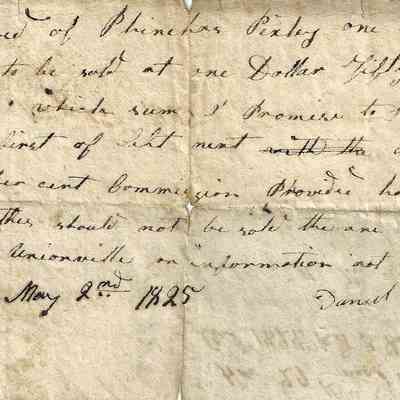 ed of Phinehas Pixley one
to be sold at one Dollar Fifty
which sum I Promise to
first of Sept next with the
per cent Commission Provided he
this should not be sold the one
Unionville on information not
May 2nd 1825 Daniel